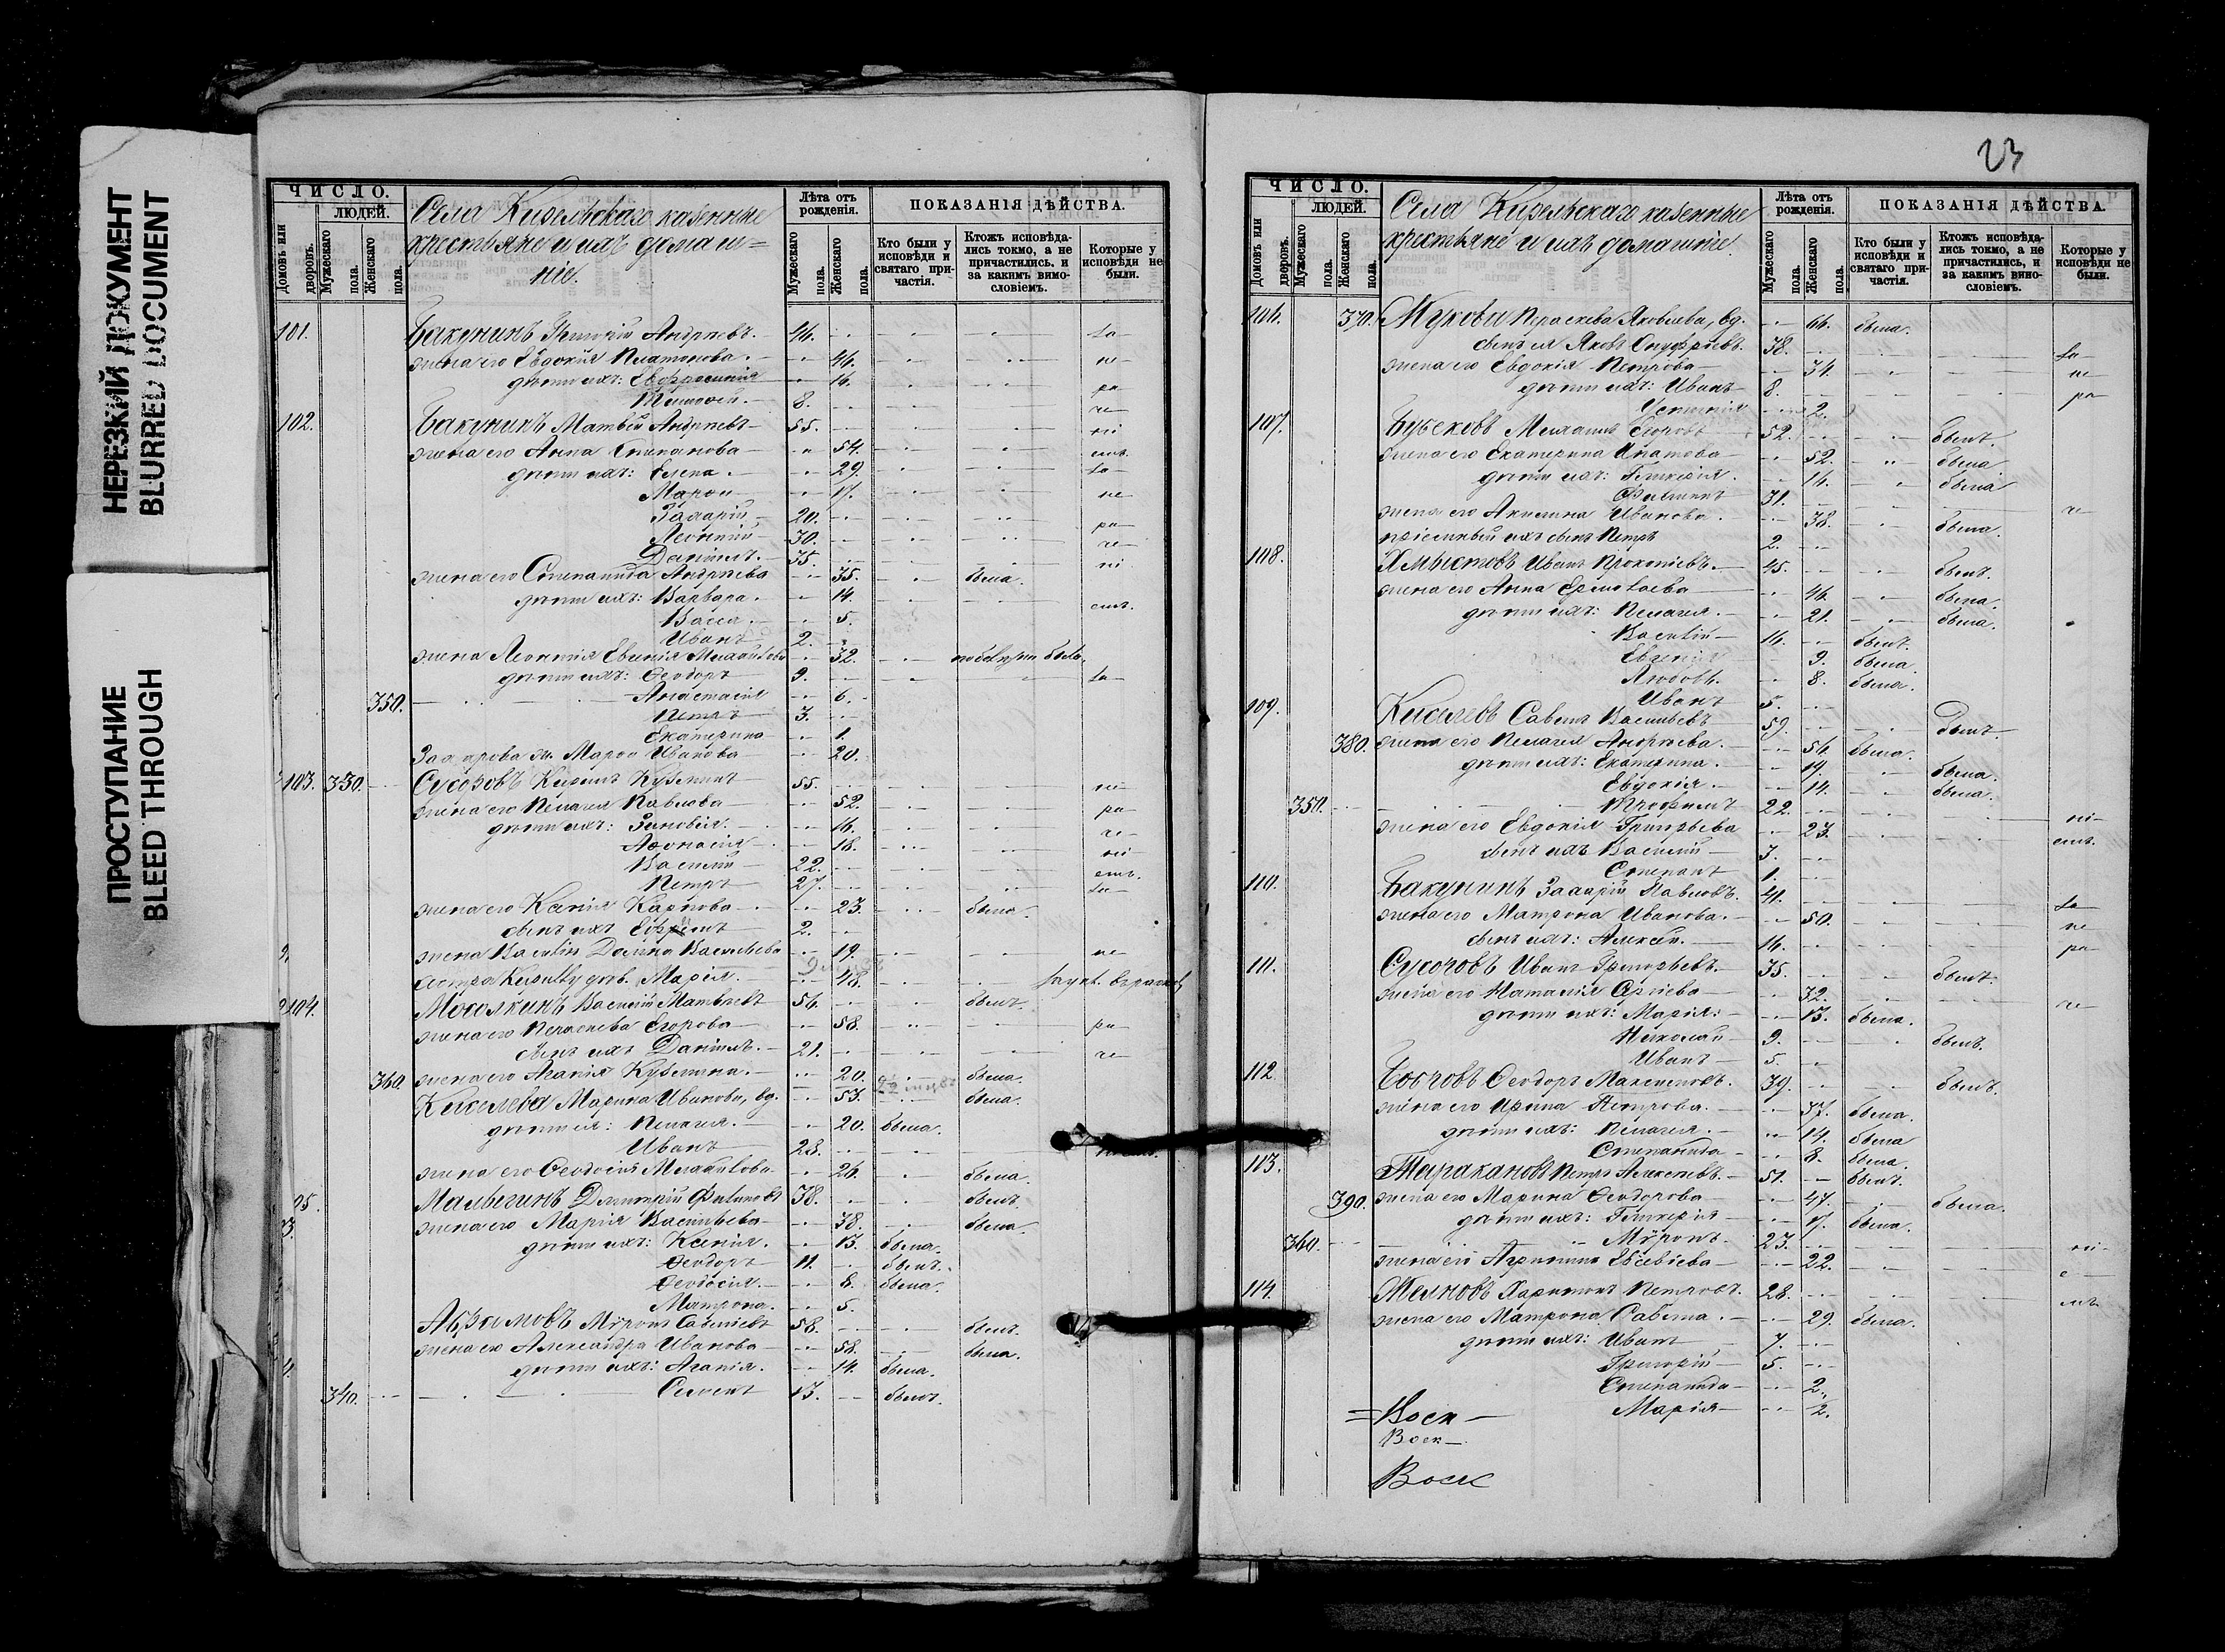 НЕРЕЗКИЙ ДОКУМЕНТ
BLURRED DOCUMENT
ПРОСТУПАНИЕ
BLEED THROUGH
ЧИСЛО.
ЛЮДЕЙ.
Домовъ или дворовъ.
Мужескаго пола.
Женскаго пола.
Села Кизельскаго казенные
крестьяне и ихъ домаш=
ніе.
Лѣта отъ рожденія.
Мужескаго пола.
Женскаго пола.
ПОКАЗАНІЯ ДѢЙСТВА.
Кто были у исповѣди и святаго причастія.
Ктожъ исповѣдались токмо, а не причастились, и за какимъ винословіемъ.
Которые у исповѣди не были.
101. Бакунинъ Григорій Андреевъ. 46. за
жена его Евдокія Платонова. 46. не
дѣти ихъ: Евфросинія 16. ра
Тимофей. 8. че
102. Бакунинъ Матвѣй Андреевъ 55. ні
жена его Анна Степанова 54. емъ.
дѣти ихъ: Елена. 29. за
Марѳа 17. не
Захарій 20. ра
Леонтій 30. че
Даніилъ. 35. ні
жена его Степанида Андреева 35. была.
дѣти ихъ: Варвара. 14. емъ.
Васса. 5.
Иванъ 2.
жена Леонтія Евгенія Михайлова 32. была.
дѣти ихъ: Ѳеодоръ 9. за
350. Анастасія 6.
Петръ 3.
Екатерина 1.
Захарова ж. Марѳа Иванова 20.
103. 330. Сусоровъ Кирилъ Кузьминъ 55. не
жена его Пелагея Павлова 52. ра
дѣти ихъ: Зиновія. 16. че
Аѳонасія 18. ні
Василій 22. емъ.
Петръ 27. за
жена его Ксенія Карпова 23. была.
сынъ ихъ Ефремъ 2.
жена Василія Васильева 19. не
сестра Марія. 48.
104. Василій Матвѣевъ 56. былъ.
жена его Параскева Егорова 58. ра
сынъ ихъ Даніилъ. 21. че
360. жена его Агапія Кузьмина. 20. была.
Киселева Марина Иванова, вд. 53. была.
дѣти ея: Пелагея. 20. была.
Иванъ 28.
жена его Ѳеодосія Михайлова 26. была.
Малыгинъ Дмитрій Филиповъ 38. былъ.
жена его Марія Васильева 38. была.
дѣти ихъ: Ксенія. 13. была.
Ѳеодоръ 11. былъ.
Ѳеодосія. 8. была.
Матрона. 5.
Абрамовъ Миронъ 58. былъ.
жена его Александра Иванова 58. была.
дѣти ихъ: Агапія. 14. была.
340. 13. былъ.
23
ЧИСЛО.
ЛЮДЕЙ.
Домовъ или дворовъ.
Мужескаго пола.
Женскаго пола.
Села Кизельскаго казенные
крестьяне и ихъ домашніе.
Лѣта отъ рожденія.
Мужескаго пола.
Женскаго пола.
ПОКАЗАНІЯ ДѢЙСТВА.
Кто были у исповѣди и святаго причастія.
Ктожъ исповѣдались токмо, а не причастились, и за какимъ винословіемъ.
Которые у исповѣди не были.
106. 370. Жукова Параскева Яковлева, вд. 66. была.
сынъ ея Яковъ Онуфріевъ. 38. за
жена его Евдокія Петрова 34. не
дѣти ихъ: Иванъ 8. ра
Устинія 2.
107. Михаилъ Егоровъ 52. былъ.
жена его Екатерина Ипатова 52. была
дѣти ихъ: Гликерія. 16. была
Филипъ 31. че
жена его Акилина Иванова. 38. была.
пріемный ихъ сынъ Петръ 2.
108. Хлыстовъ Иванъ Прокопіевъ. 45. былъ.
жена его Анна Ермолаева 46. была.
дѣти ихъ: Пелагея. 21. была.
Василій 16. былъ.
Евгенія 9. была.
Любовь. 8. была.
Иванъ 5.
109. Киселевъ Савелъ Васильевъ 59. былъ.
380. жена его Пелагея Андреева. 56. была.
дѣти ихъ: Екатерина. 19. была.
Евдокія. 14. была.
350. Трофимъ 22. ні
жена его Евдокія Григорьева 23. емъ.
сынъ ихъ Василій 3.
Степанъ 1.
110. Бакунинъ Захарій Павловъ. 41. за
жена его Матрона Иванова. 50. не
сынъ ихъ: Алексѣй. 16. ра
111. Сусоровъ Иванъ Григорьевъ. 35. былъ.
жена его Наталія 32. че
дѣти ихъ: Марія: 13. была.
Николай 9. былъ.
Иванъ 5.
112. Ѳеодоръ Максимовъ. 39. былъ.
жена его Ирина Петрова. 37. была.
дѣти ихъ: Пелагея. 14. была
Степанида 8. была.
113. Таракановъ Петръ Алексѣевъ. 51. былъ.
390. жена его Марина Ѳеодорова 47. была.
дѣти ихъ: Гликерія 17. была.
360. Миронъ. 23. ні
жена его Агрипина Евсевіева 22. е
114. Харитонъ Петровъ. 28. мъ
жена его Матрона Савина. 29. была.
дѣти ихъ: Иванъ 7.
Григорій 5.
Степанида 2.
Марія 2.
=Воск
Воск
Воск